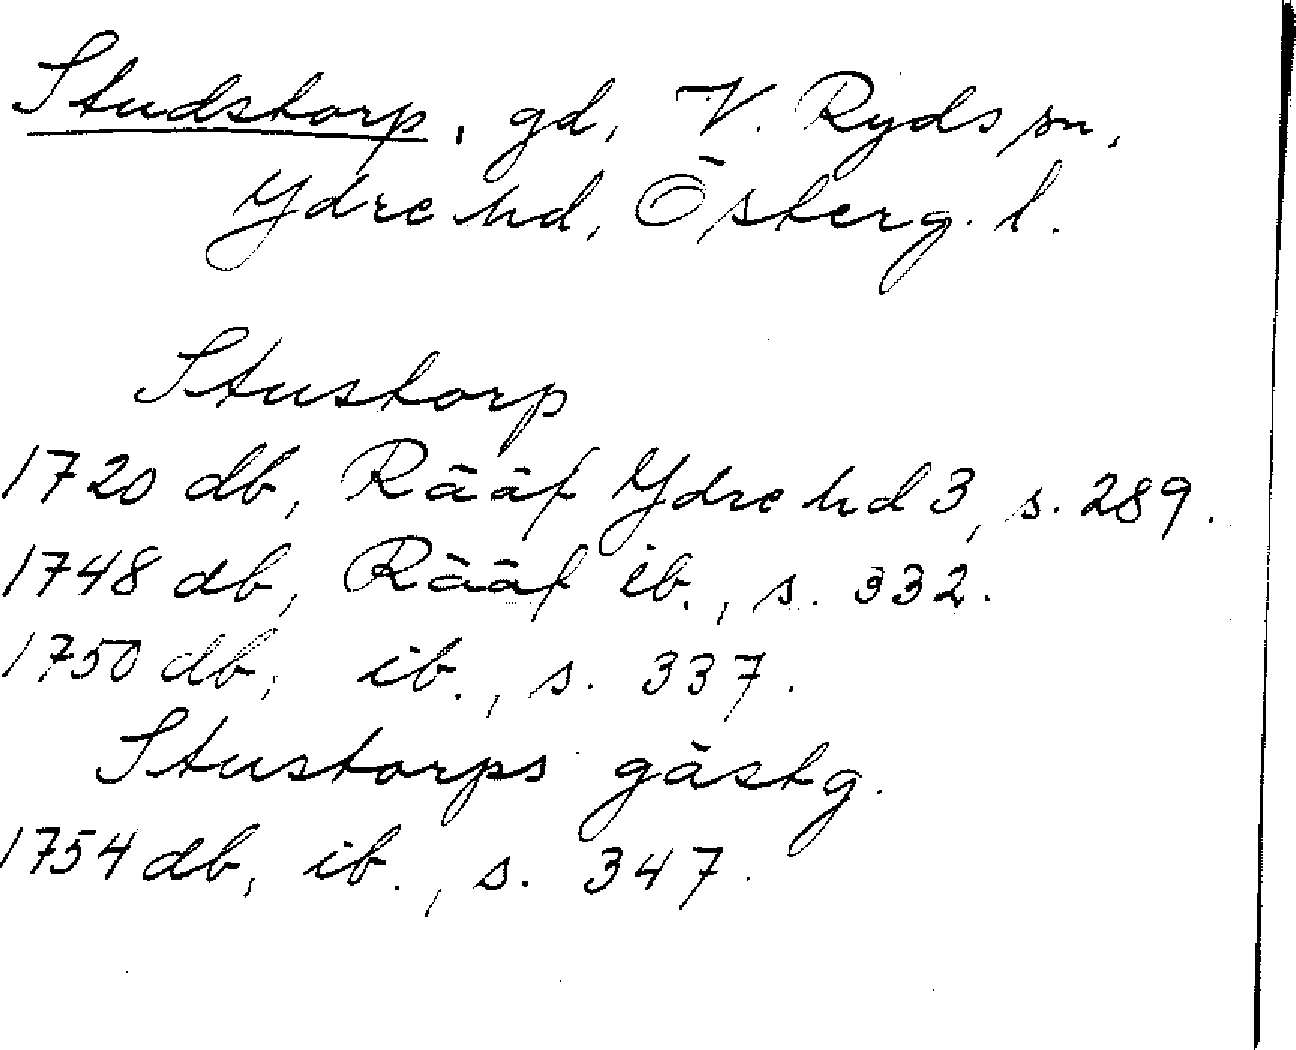 Studstorp, gd, V. Ryds sn,
Ydre hd, Österg. l.
Stustorp
1720 db, Rääf Ydre hd 3, s. 289.
1748 db, Rääf ib., s. 332.
1750 db, ib., s. 337.
Stustorps gästg.
1754 db, ib., s. 347.